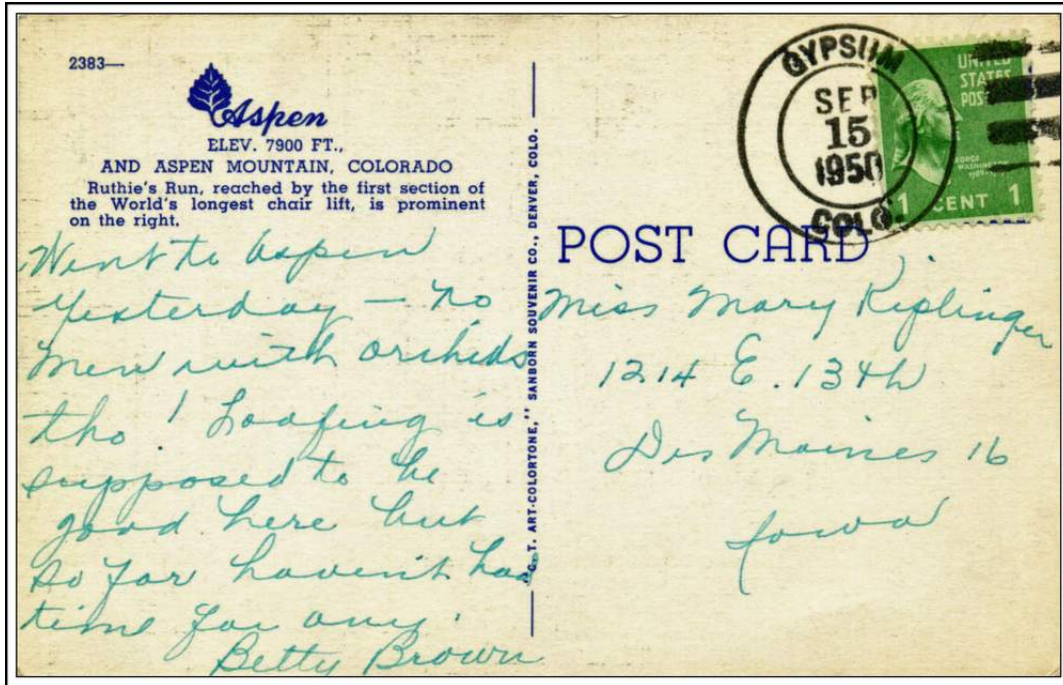 2383—
Aspen
ELEV. 7900 FT.,
AND ASPEN MOUNTAIN, COLORADO
Ruthie's Run, reached by the first section of
the World's longest chair lift, is prominent
on the right.
Went to Aspen
yesterday — no
men with orchids
tho! Loafing is
supposed to be
good here but
so far haven't had
time for any.
Betty Brown
"C. T. ART-COLORTONE," SANBORN SOUVENIR CO., DENVER, COLO.
GYPSUM
SEP
15
1950
COLO.
UNITED
STATES
POST
GEORGE
WASHINGTON
1 CENT 1
POST CARD
Miss Mary Kiplinger
1214 E. 13th
Des Moines 16
Iowa